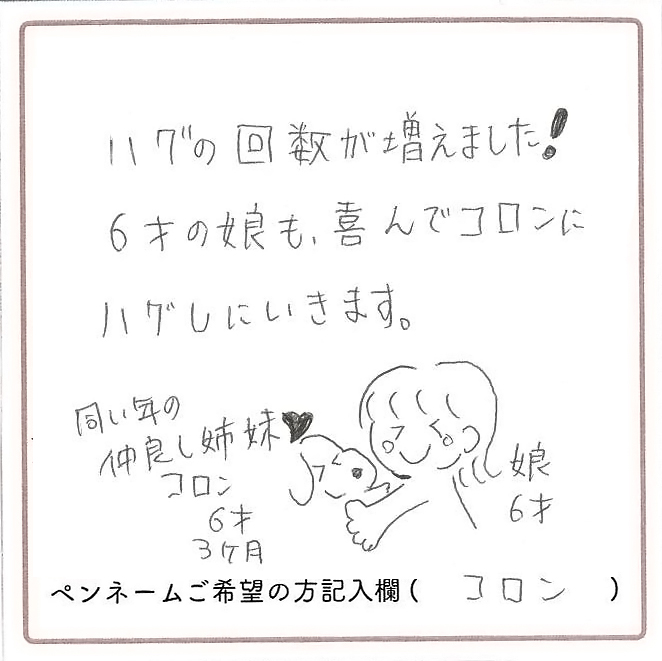 ハグの回数が増えました!
6才の娘も、喜んでコロンに
ハグしにいきます。
同い年の
仲良し姉妹♥
コロン
6才
3ヶ月
娘
6才
ペンネームご希望の方記入欄( コロン )